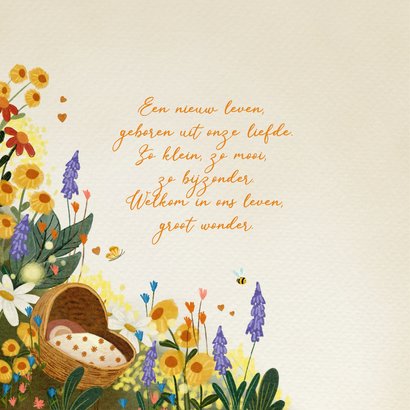 Een nieuw leven,
geboren uit onze liefde.
Zo klein, zo mooi,
zo bijzonder.
Welkom in ons leven,
groot wonder.